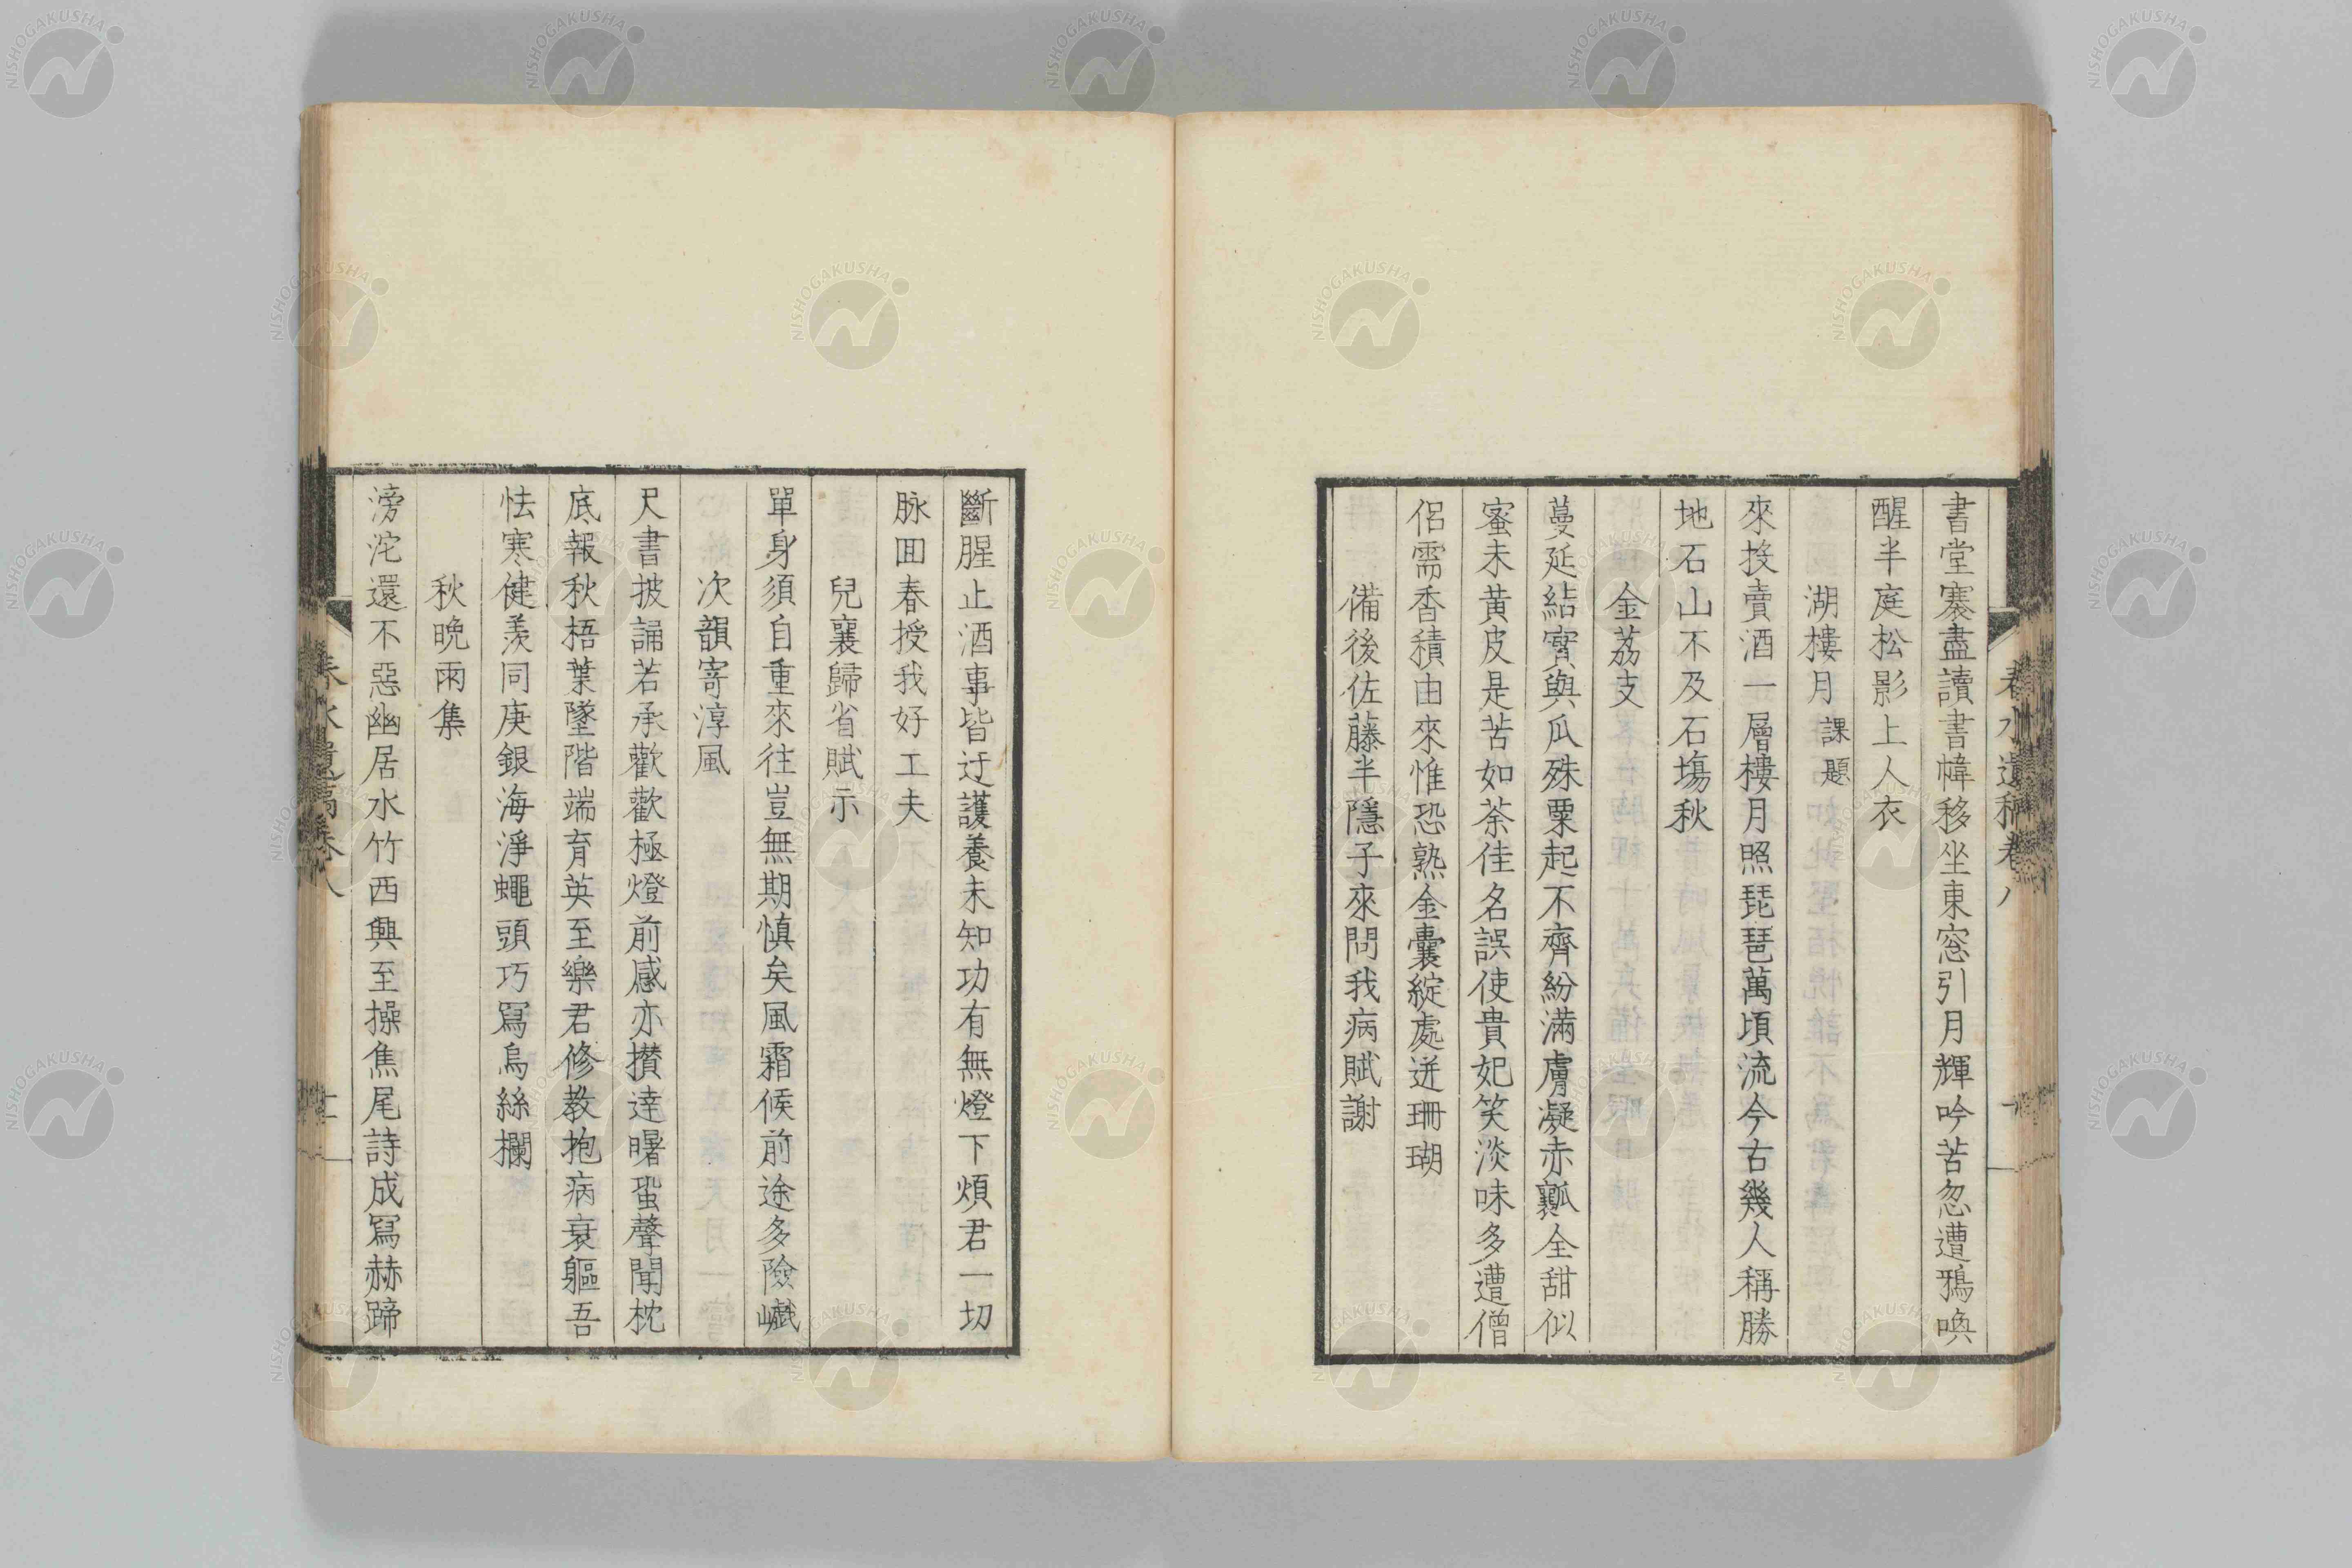 書堂褰盡讀書幃移坐東窓引月輝吟苦忽遭鴉喚
醒半庭松影上人衣
湖樓月 課題
來投賣酒一層樓月照琵琶萬頃流今古幾人稱勝
地石山不及石塲秋
金荔支
蔓延結實與瓜殊粟起不齊紛滿膚凝赤瓤全甜似
蜜未黄皮是苦如荼佳名誤使貴妃笑淡味多遭僧
侶需香積由來惟恐熟金囊綻處迸珊瑚
備後佐藤半隱子來問我病賦謝
春水遺稿卷八
斷腥止酒事皆迂護養未知功有無燈下煩君一切
脉囬春授我好工夫
兒襄歸省賦示
單身須自重來往豈無期慎矣風霜候前途多險巇
次韻寄淳風
尺書披誦若承歡歡極燈前感亦攅達曙蛩聲聞枕
底報秋梧葉墜階端育英至樂君修教抱病衰軀吾
怯寒健羨同庚銀海淨蠅頭巧寫烏絲欄
秋晩雨集
滂沱還不惡幽居水竹西興至操焦尾詩成寫赫蹄
春水遺稿卷八
NISHOGAKUSHA